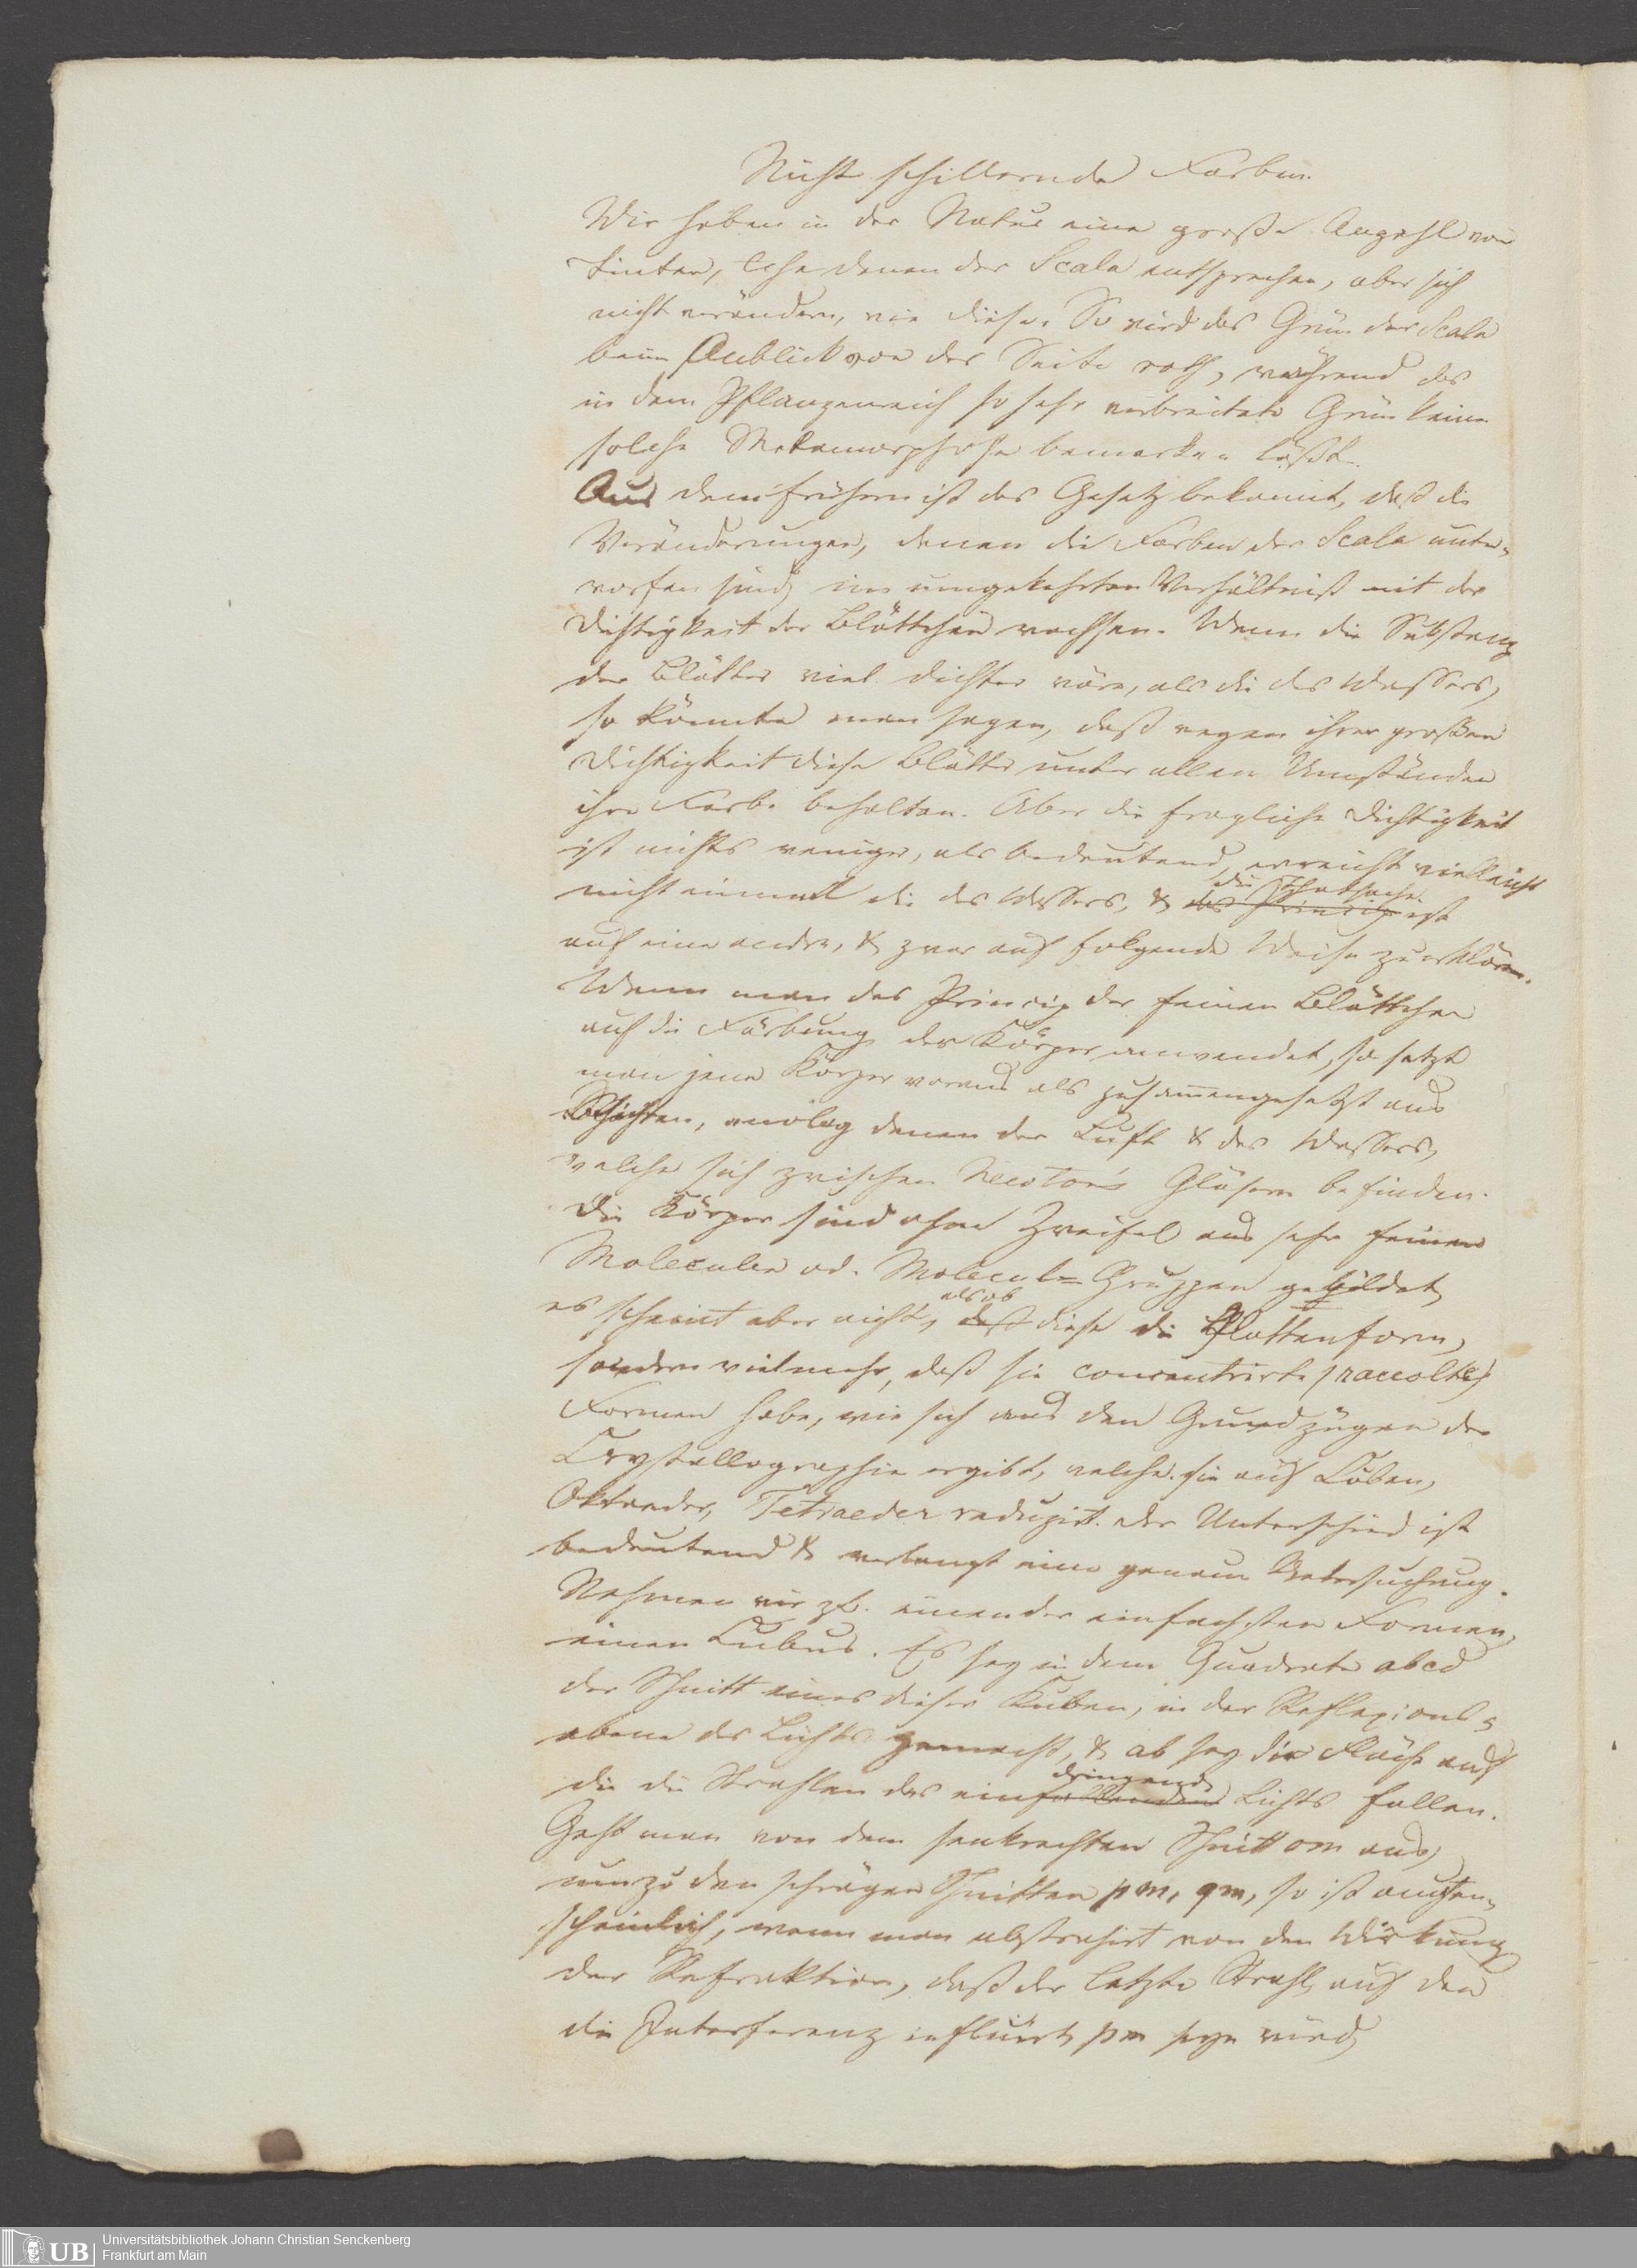 Nicht schillernde Farben.
Wir haben in der Natur eine große Anzahl von
Tinten, welche denen der Scala entsprechen, aber sich
nicht verändern, wie diese. So wird das Grün der Scala
beim Anblick von der Seite roth, während das
in dem Pflanzenreich so sehr verbreitete Grün keine
solche Metamorphose bemerken läßt.
Aus dem frühern ist das Gesetz bekannt, daß die
Veränderungen, denen die Farben der Scala unter-
worfen sind, im umgekehrten Verhältniß mit der
Dichtigkeit der Blättchen wachsen. Wenn die Substanz
der Blätter viel dichter wäre, als die des Wassers,
so könnte man sagen, daß wegen ihrer großen
Dichtigkeit diese Blätter unter allen Umständen
ihre Farbe behalten. Aber die fragliche Dichtigkeit
ist nichts weniger, als bedeutend, erreicht vielleicht
nicht einmal die des Wassers, & die Thatsache ist
auf eine andre, & zwar auf folgende Weise zu erklären.
Wenn man das Princip der feinen Blättchen
auf die Färbung der Körper anwendet, so setzt
man jene Körper voraus als zusammengesetzt aus
Schichten, analog denen der Luft & des Wassers,
welche sich zwischen Newton's Gläsern befinden.
Die Körper sind ohne Zweifel aus sehr feinen
Moleculen od. Molecul-Gruppen gebildet,
es scheint aber nicht, als ob diese die Plattenform,
sondern vielmehr, daß sie concentrirte (raccolte)
Formen habe, wie sich aus den Grundzügen der
Crystallographie ergibt, welche sie auf Cuben,
Oktaeder, Tetraeder reduzirt. Der Unterschied ist
bedeutend & verlangt eine genaue Untersuchung.
Nehmen wir zb. eine der einfachsten Formen,
einen Cubus. Es sey in dem Quadrate abcd
der Schnitt eines dieser Kuben, in der Reflexions-
ebene des Lichts gemacht, & ab sey die Fläche auf
die die Strahlen des eindringenden Lichts fallen.
Geht man von dem senkrechten Schnitt om aus,
um zu den schrägen Schnitten pm, qm, so ist augen-
scheinlich, wenn man abstrahirt von der Wirkung
der Refraktion, daß der letzte Strahl, auf den
die Interferenz influirt, pm seyn wird,
Universitätsbibliothek Johann Christian Senckenberg
Frankfurt am Main
UB